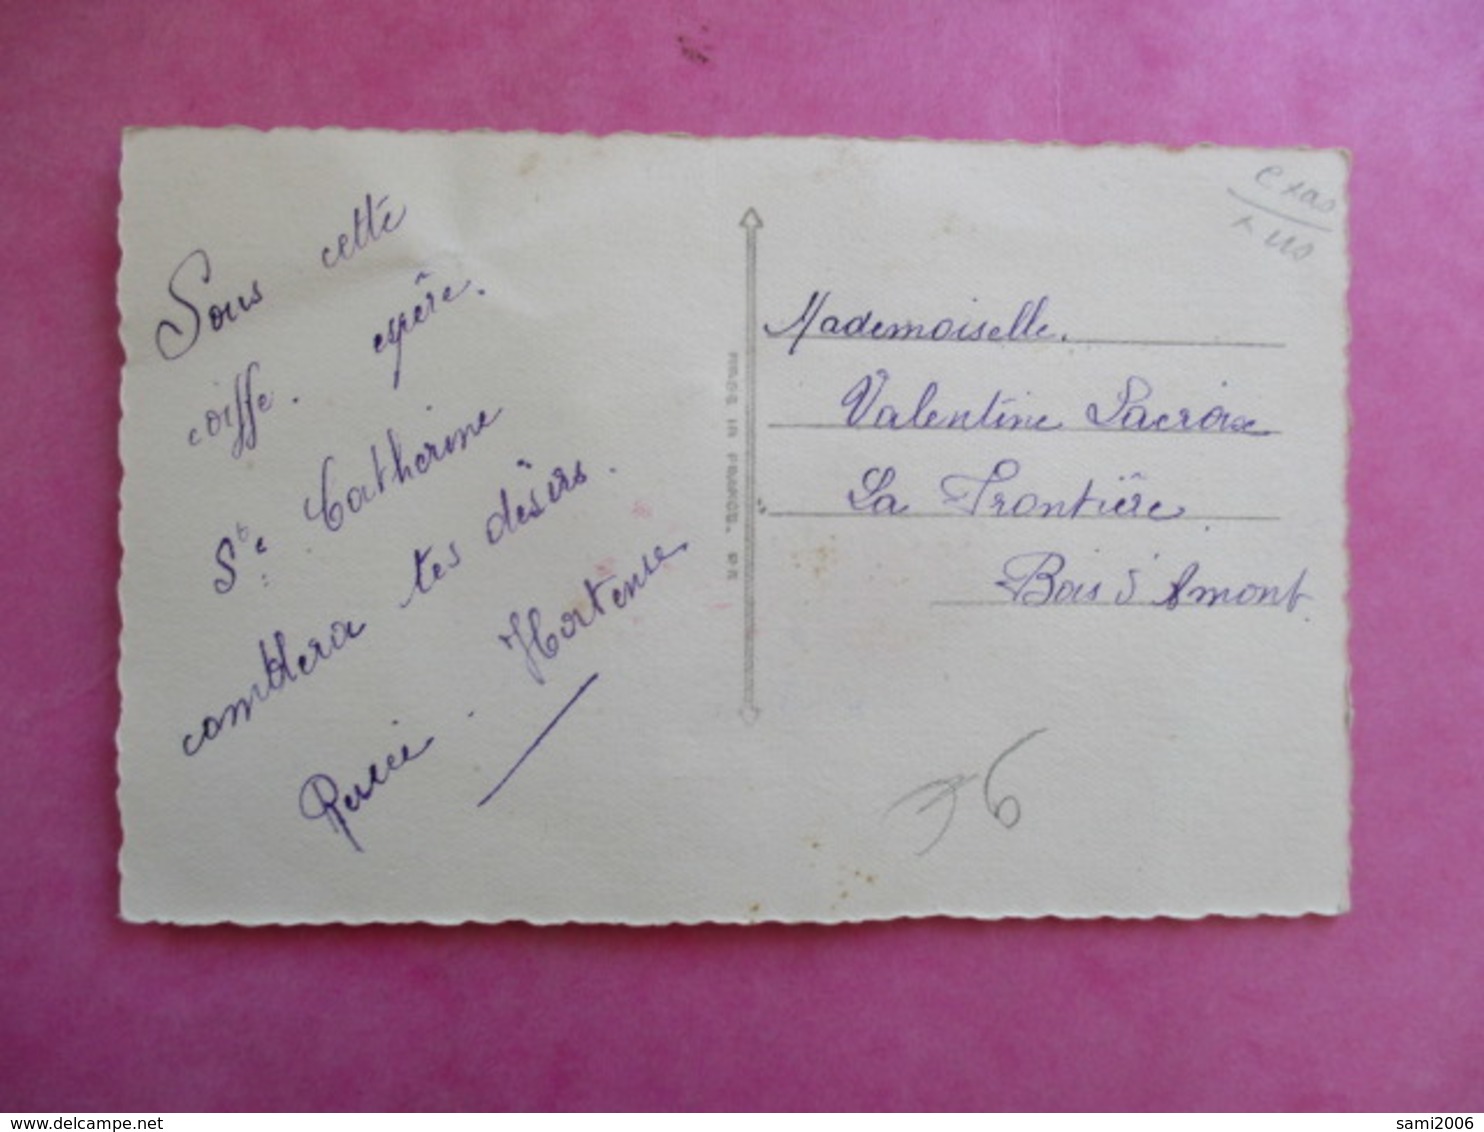 Sous cette
coiffe. espère.
Ste Catherine
comblera tes désirs.
Hortense
MADE IN FRANCE.
Mademoiselle.
Valentine Lacroix
La Frontière.
Bois d'Amont
36
sami2006